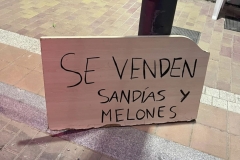 SE VENDEN
SANDÍAS Y
MELONES